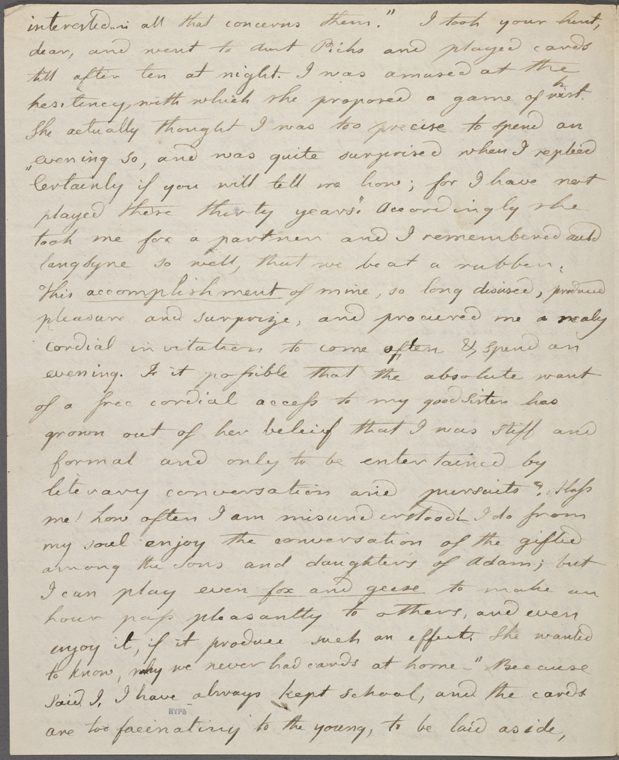 interested in all that concerns them." I took your hint,
dear, and went to Aunt Pichs and played cards
till after ten at night. I was amused at the
hesitency, with which she proposed a game of whist.
She actually thought I was too precise to spend an
evening so, and was quite surprised when I replied
"Certainly if you will tell me how; for I have not
played these thirty years". Accordingly she
took me for a partner and I remembered auld
langsyne so well, that we beat a rubber.
This accomplishment of mine, so long disused, produced
pleasure and surprize, and procured me a realy
cordial invitation to come often & spend an
evening. Is it possible that the absolute want
of a free cordial access to my good sisters has
grown out of her belief that I was stiff and
formal and only to be entertained by
literary conversation and pursuits? Bless
me! how often I am misunderstood! I do from
my soul enjoy the conversation of the gifted
among the sons and daughters of Adam; but
I can play even fox and geese to make an
hour pass pleasantly to others, and even
enjoy it, if it produce such an effect. She wanted
to know, why we never had cards at home—" Because
said I, I have always kept school, and the cards
NYPL
are too facinating to the young, to be laid aside,